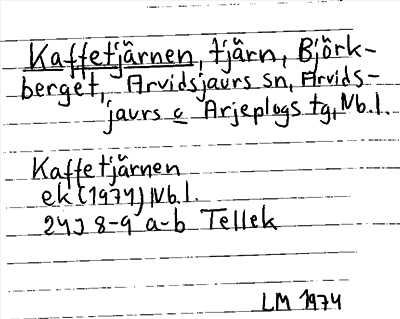 Kaffetjärnen, tjärn, Björk-
berget, Arvidsjaurs sn, Arvids-
jaurs c Arjeplogs tg, Nb.l.
Kaffetjärnen
ek (1974) Nb.l.
24J 8-9 a-b Tellek
LM 1974